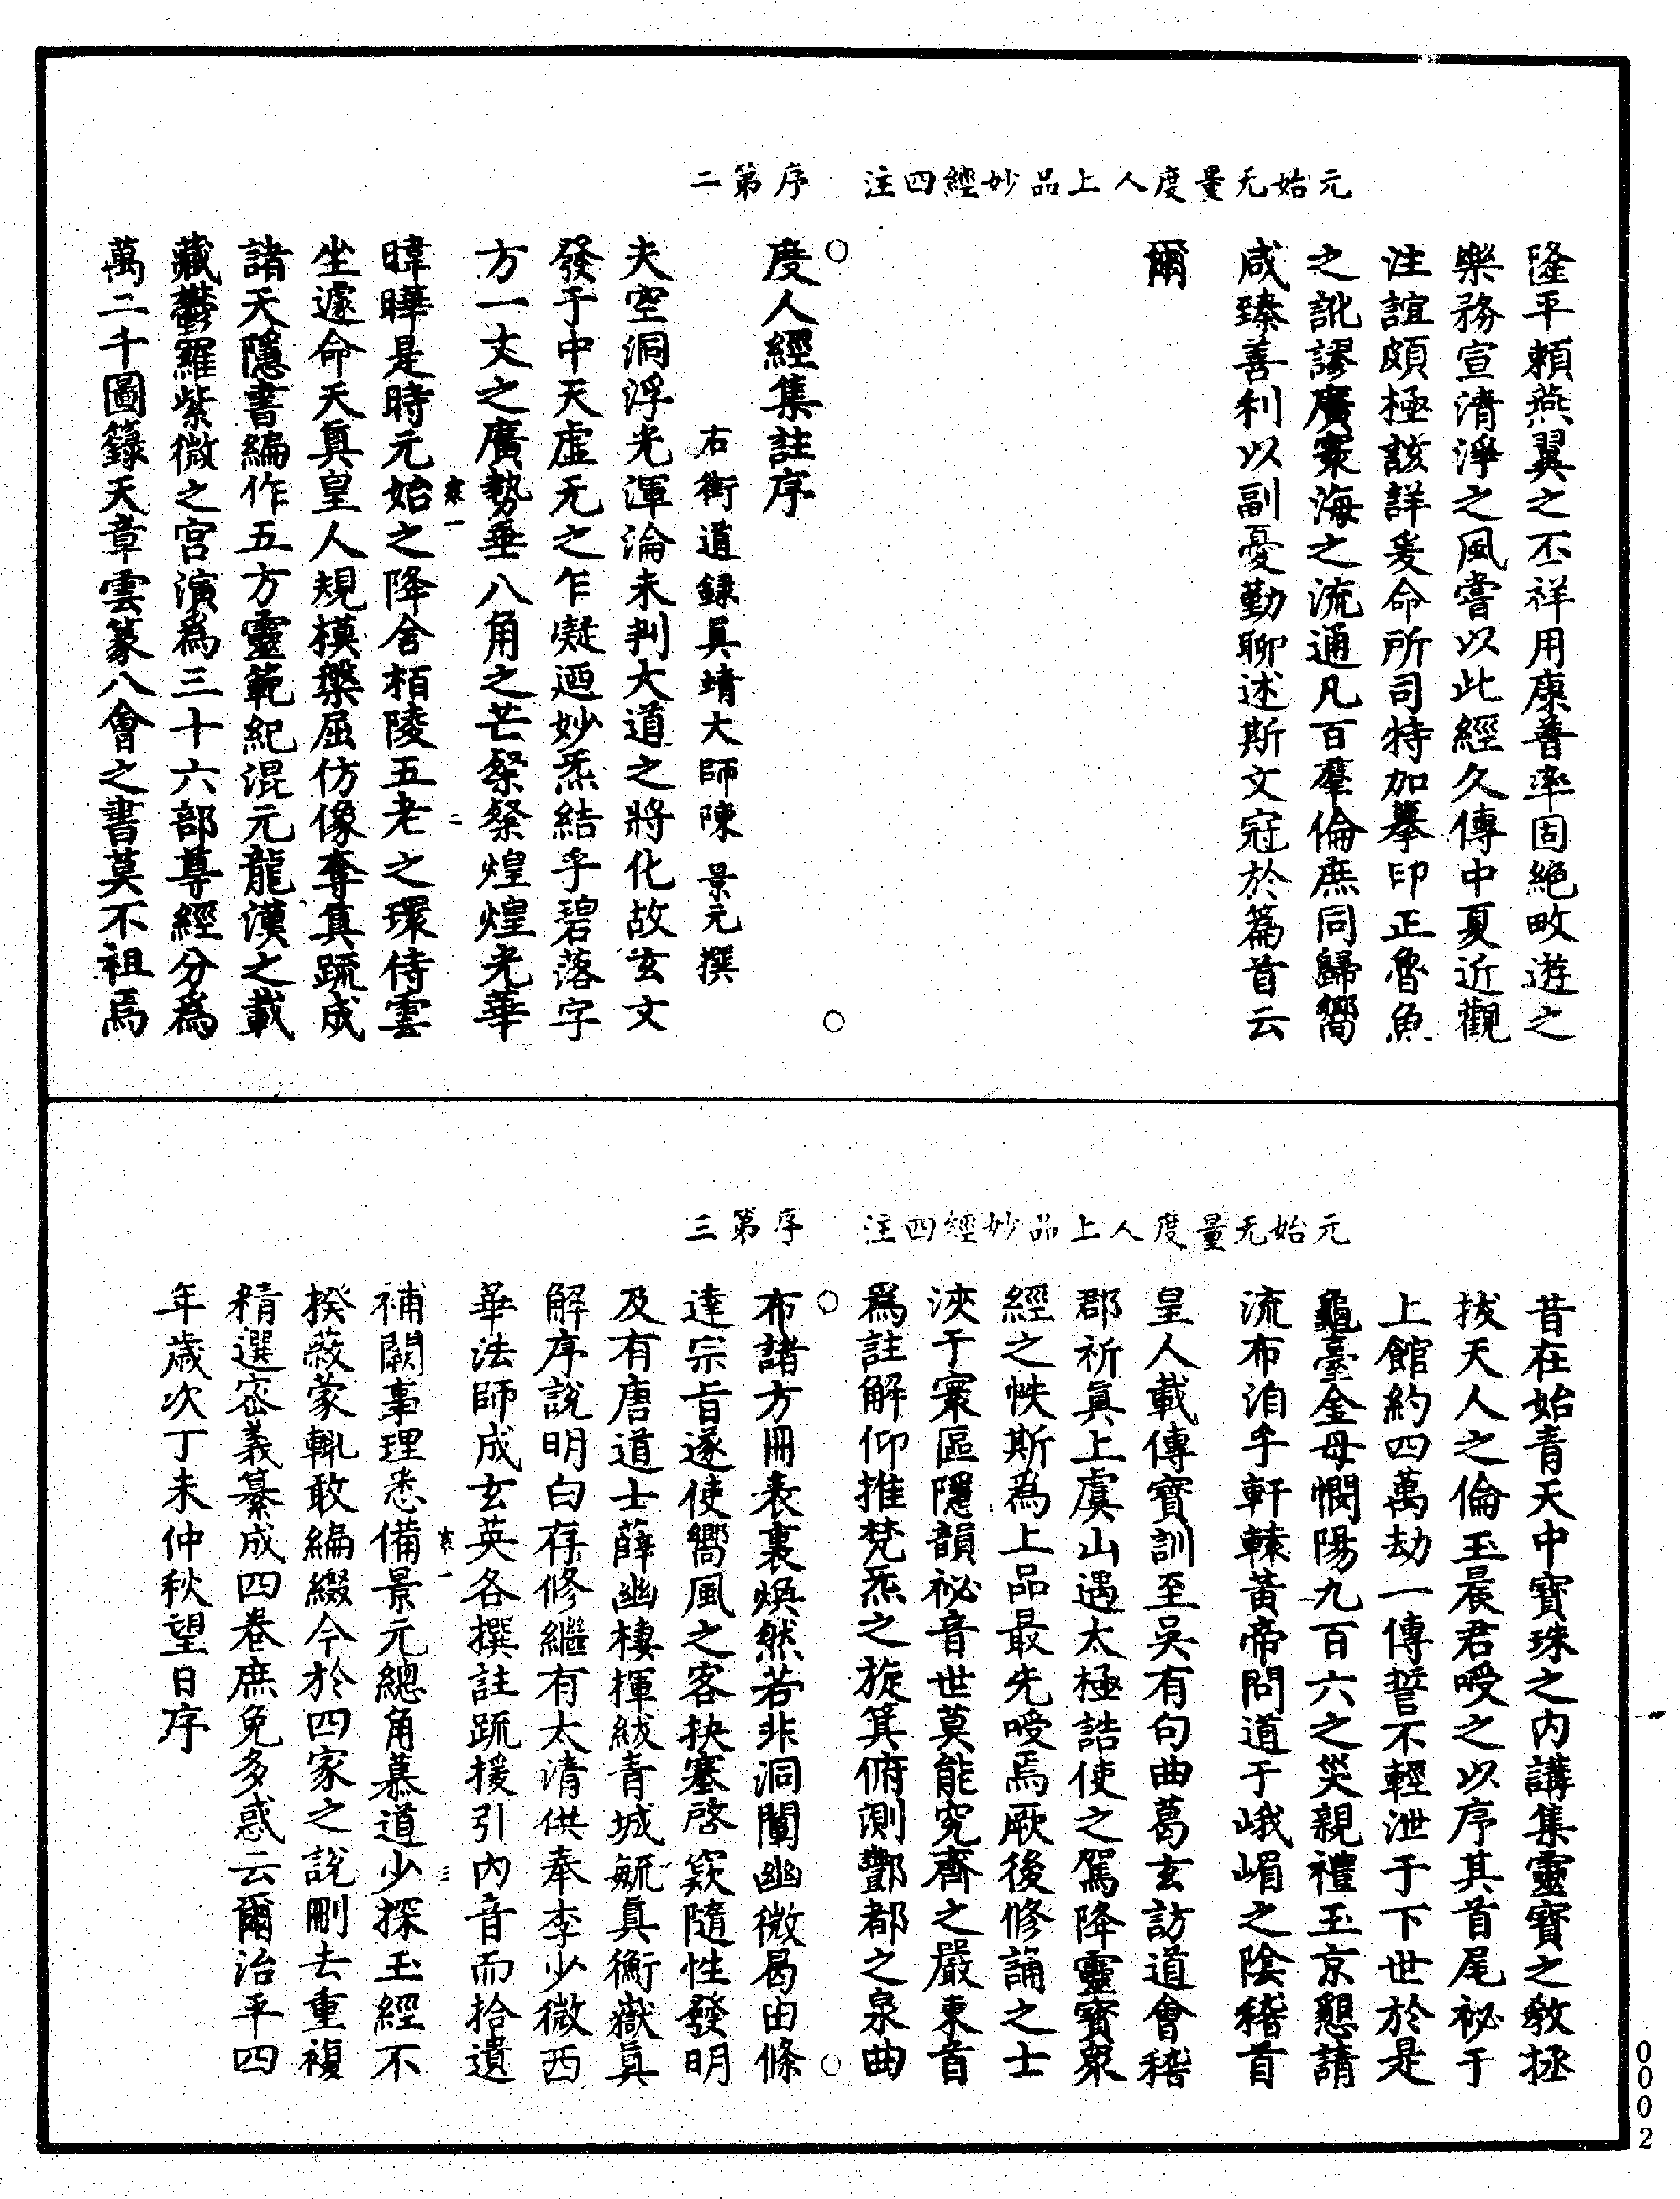 元始无量度人上品妙經四注　序第二
隆平頼燕翼之丕祥用康普率固絶畋遊之
樂務宣清淨之風嘗以此經久傳中夏近觀
注誼頗極該詳爰命所司特加摹印正魯魚
之訛謬廣寰海之流通凡百羣倫庶同歸嚮
咸臻善利以副憂勤聊述斯文冠於篇首云
爾
度人經集註序
右街道録眞靖大師陳景元撰
夫空洞浮光渾淪未判大道之將化故玄文
發于中天虛无之乍凝迺妙炁結乎碧落字
方一丈之廣勢垂八角之芒粲粲煌煌光華
暐曄是時元始之降舍栢陵五老之環侍雲
寒一
二
坐遽命天眞皇人規模槃屈仿像奪眞䟽成
諸天隱書編作五方靈範紀混元龍漢之載
藏欝羅紫微之宫演爲三十六部尊經分爲
萬二千圖籙天章雲篆八會之書莫不祖焉
元始无量度人上品妙經四注　序第三
昔在始青天中寶珠之内講集靈寶之教拯
拔天人之倫玉晨君嘤之以序其首尾祕于
上館約四萬劫一傳誓不輕泄于下世於是
龜臺金母憫陽九百六之災親禮玉京懇請
流布洎乎軒轅黃帝問道于峨嵋之陰稽首
皇人載傳寶訓至吳有句曲葛玄訪道會稽
郡祈眞上虞山遇太極誥使之駕降靈寶衆
經之帙斯為上品最先嘤焉厥後修誦之士
浹于寰區隱韻祕音世莫能究齊之嚴東首
爲註解仰推梵炁之旋箕俯測酆都之泉曲
布諸方冊表裏煥然若非洞闡幽微曷由條
達宗旨遂使嚮風之客抉塞啓窾隨性發明
及有唐道士薛幽棲揮紱青城毓眞衡嶽眞
解序說明白存修繼有太清供奉李少微西
華法師成玄英各撰註䟽援引内音而拾遺
補闕事理悉備景元總角慕道少探玉經不
寒一
三
揆蔽蒙輒敢編綴今於四家之說刪去重複
精選密義纂成四卷庶免多惑云爾治平四
年歲次丁未仲秋望日序
0002